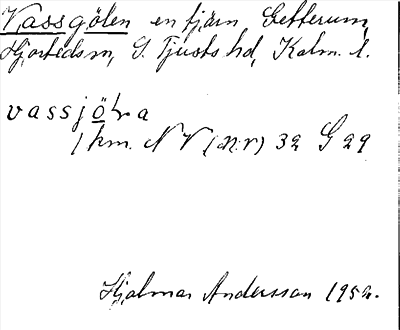 Vassgölen en tjärn Getterum,
Hjorteds sn, S. Tjusts hd, Kalm. l.
vassjö̀lra
1 km. NV (Nr) 32 G 29
Hjalmar Andersson 1952.